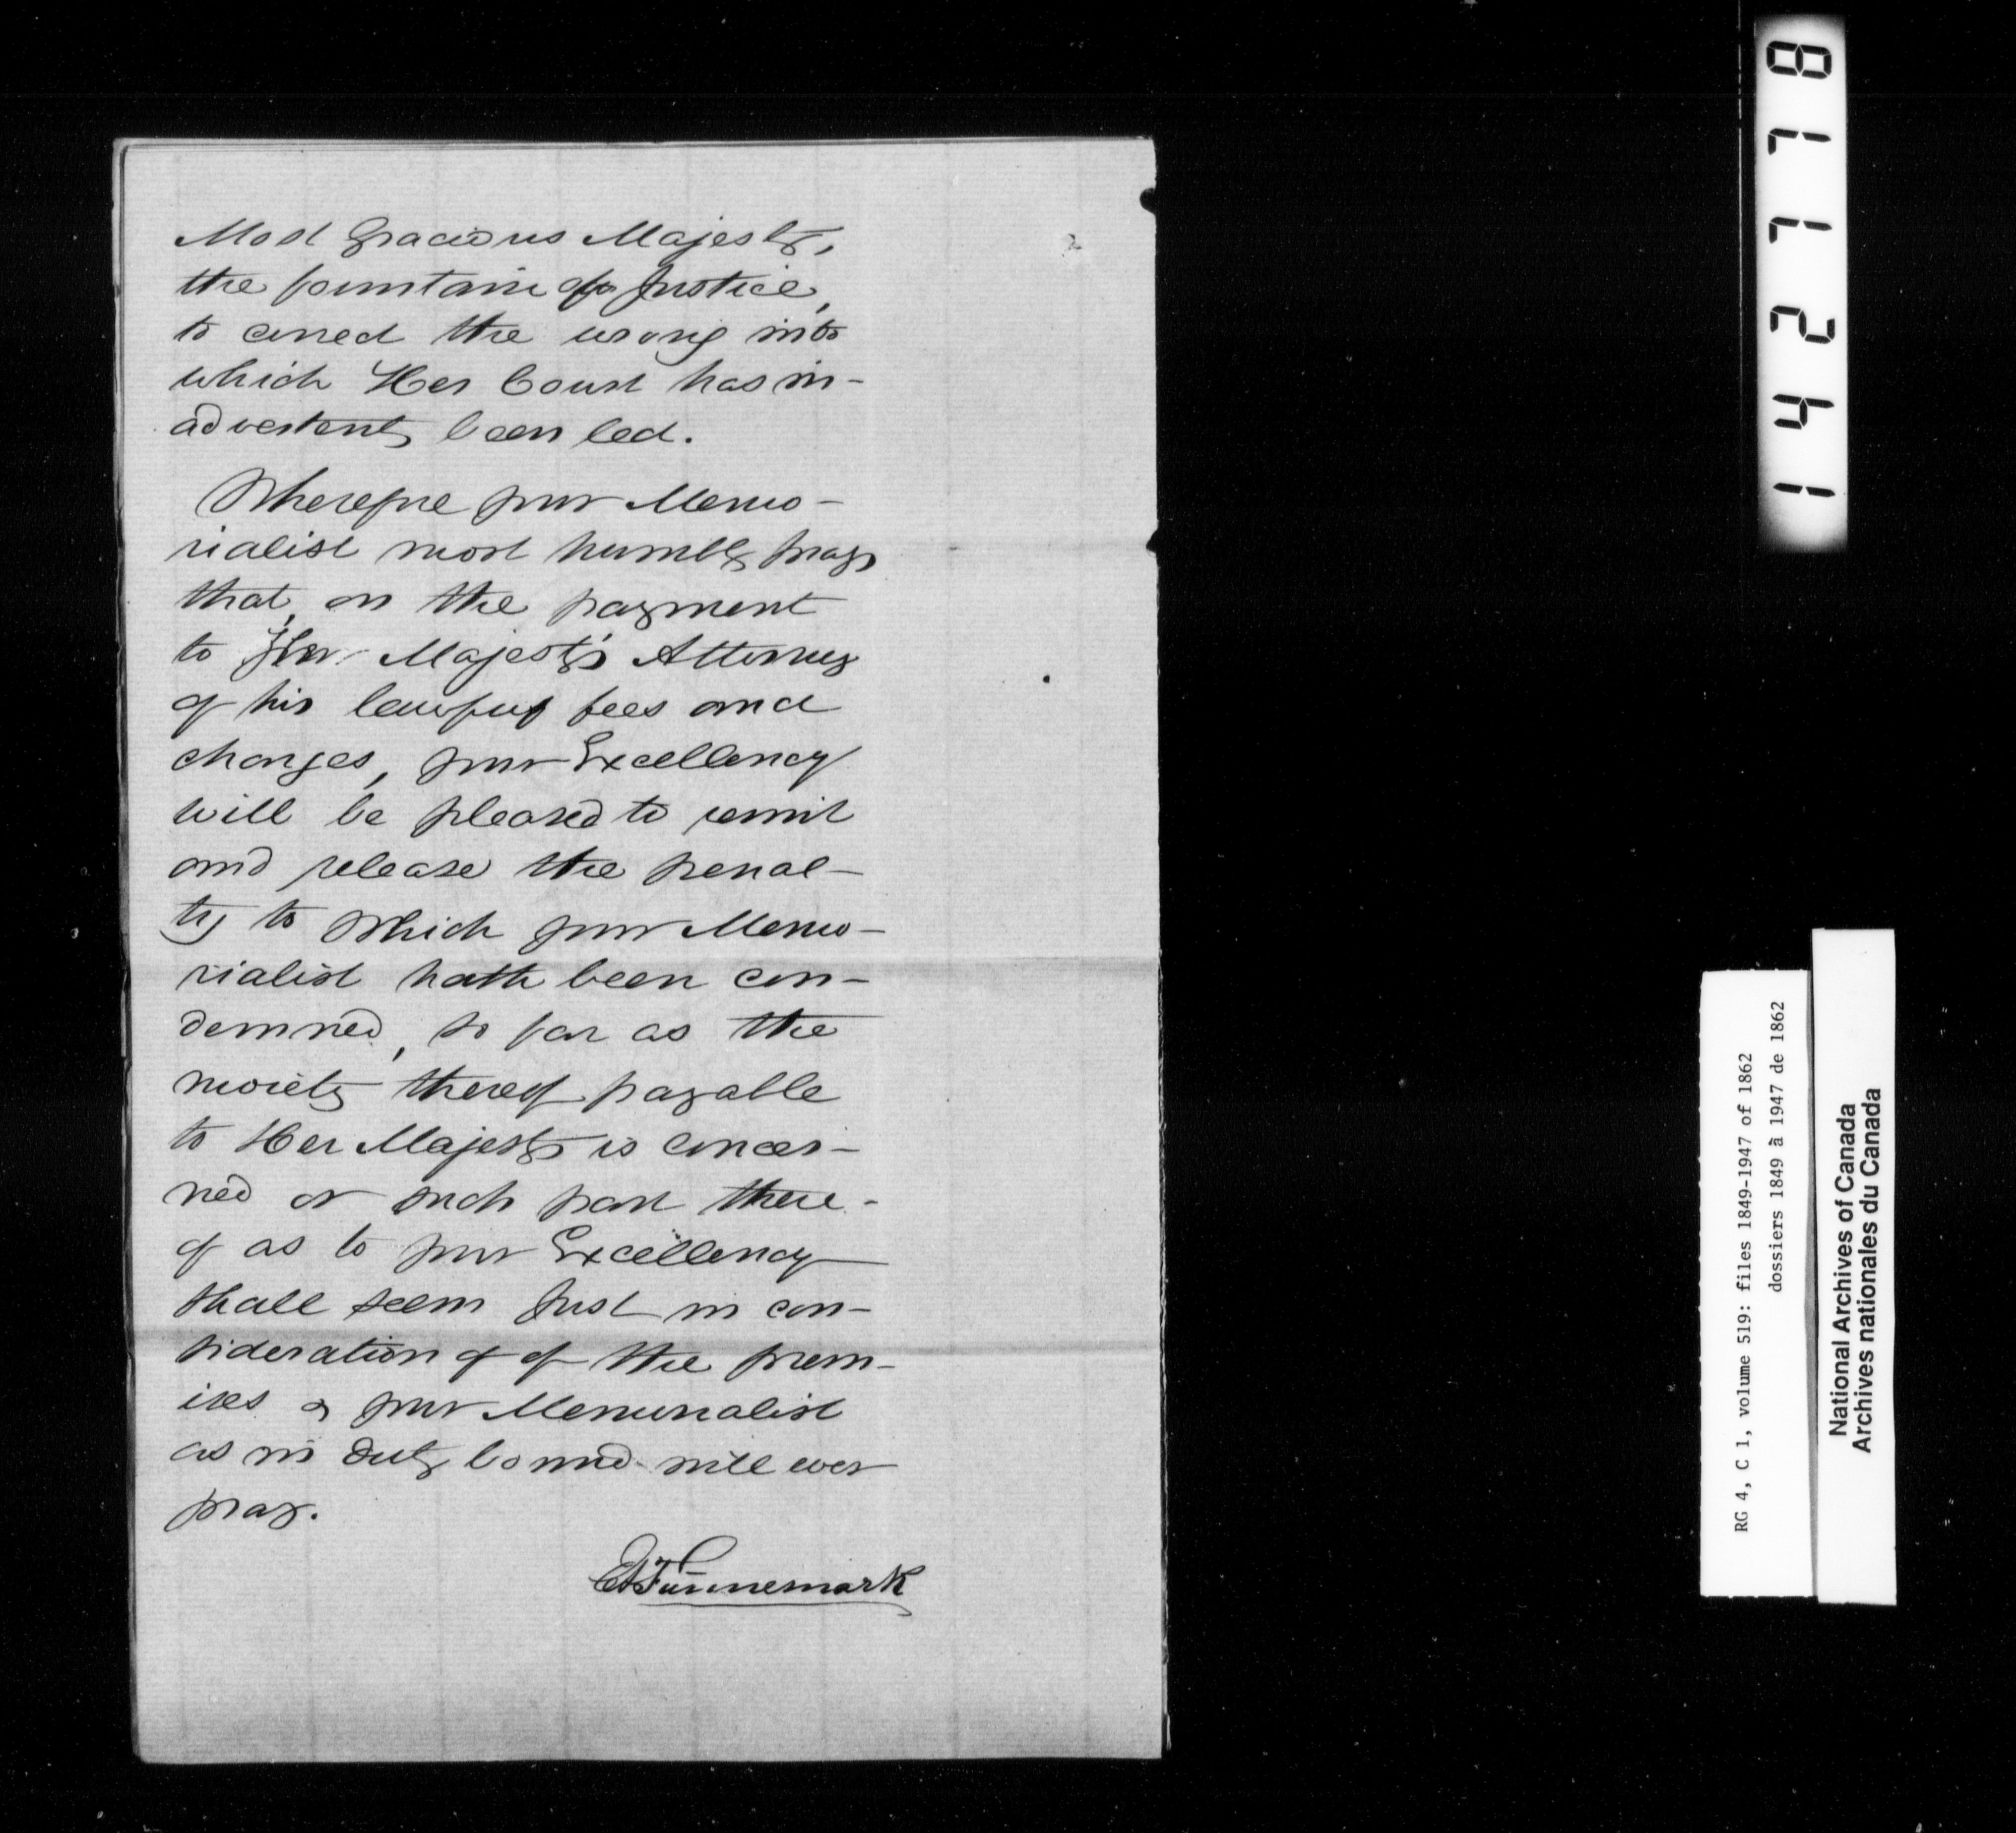 Most Gracious Majesty,
the fountain of Justice,
to correct the wrong into
which Her Court has in-
advertently been led.
Wherefore your Memo-
rialist most humbly prays
that, on the payment
to Her Majesty's Attorney
of his lawful fees and
charges, your Excellency
will be pleased to remit
and release the penal-
ty to which your Memo-
rialist hath been con-
demned, so far as the
moiety thereof payable
to Her Majesty is concer-
ned or such part there-
of as to your Excellency
shall seem just in con-
sideration of of the prem-
ises & your Memorialist
as in duty bound will ever
pray.
2
142778
RG 4, C 1, volume 519: files 1849-1947 of 1862
dossiers 1849 à 1947 de 1862
National Archives of Canada
Archives nationales du Canada